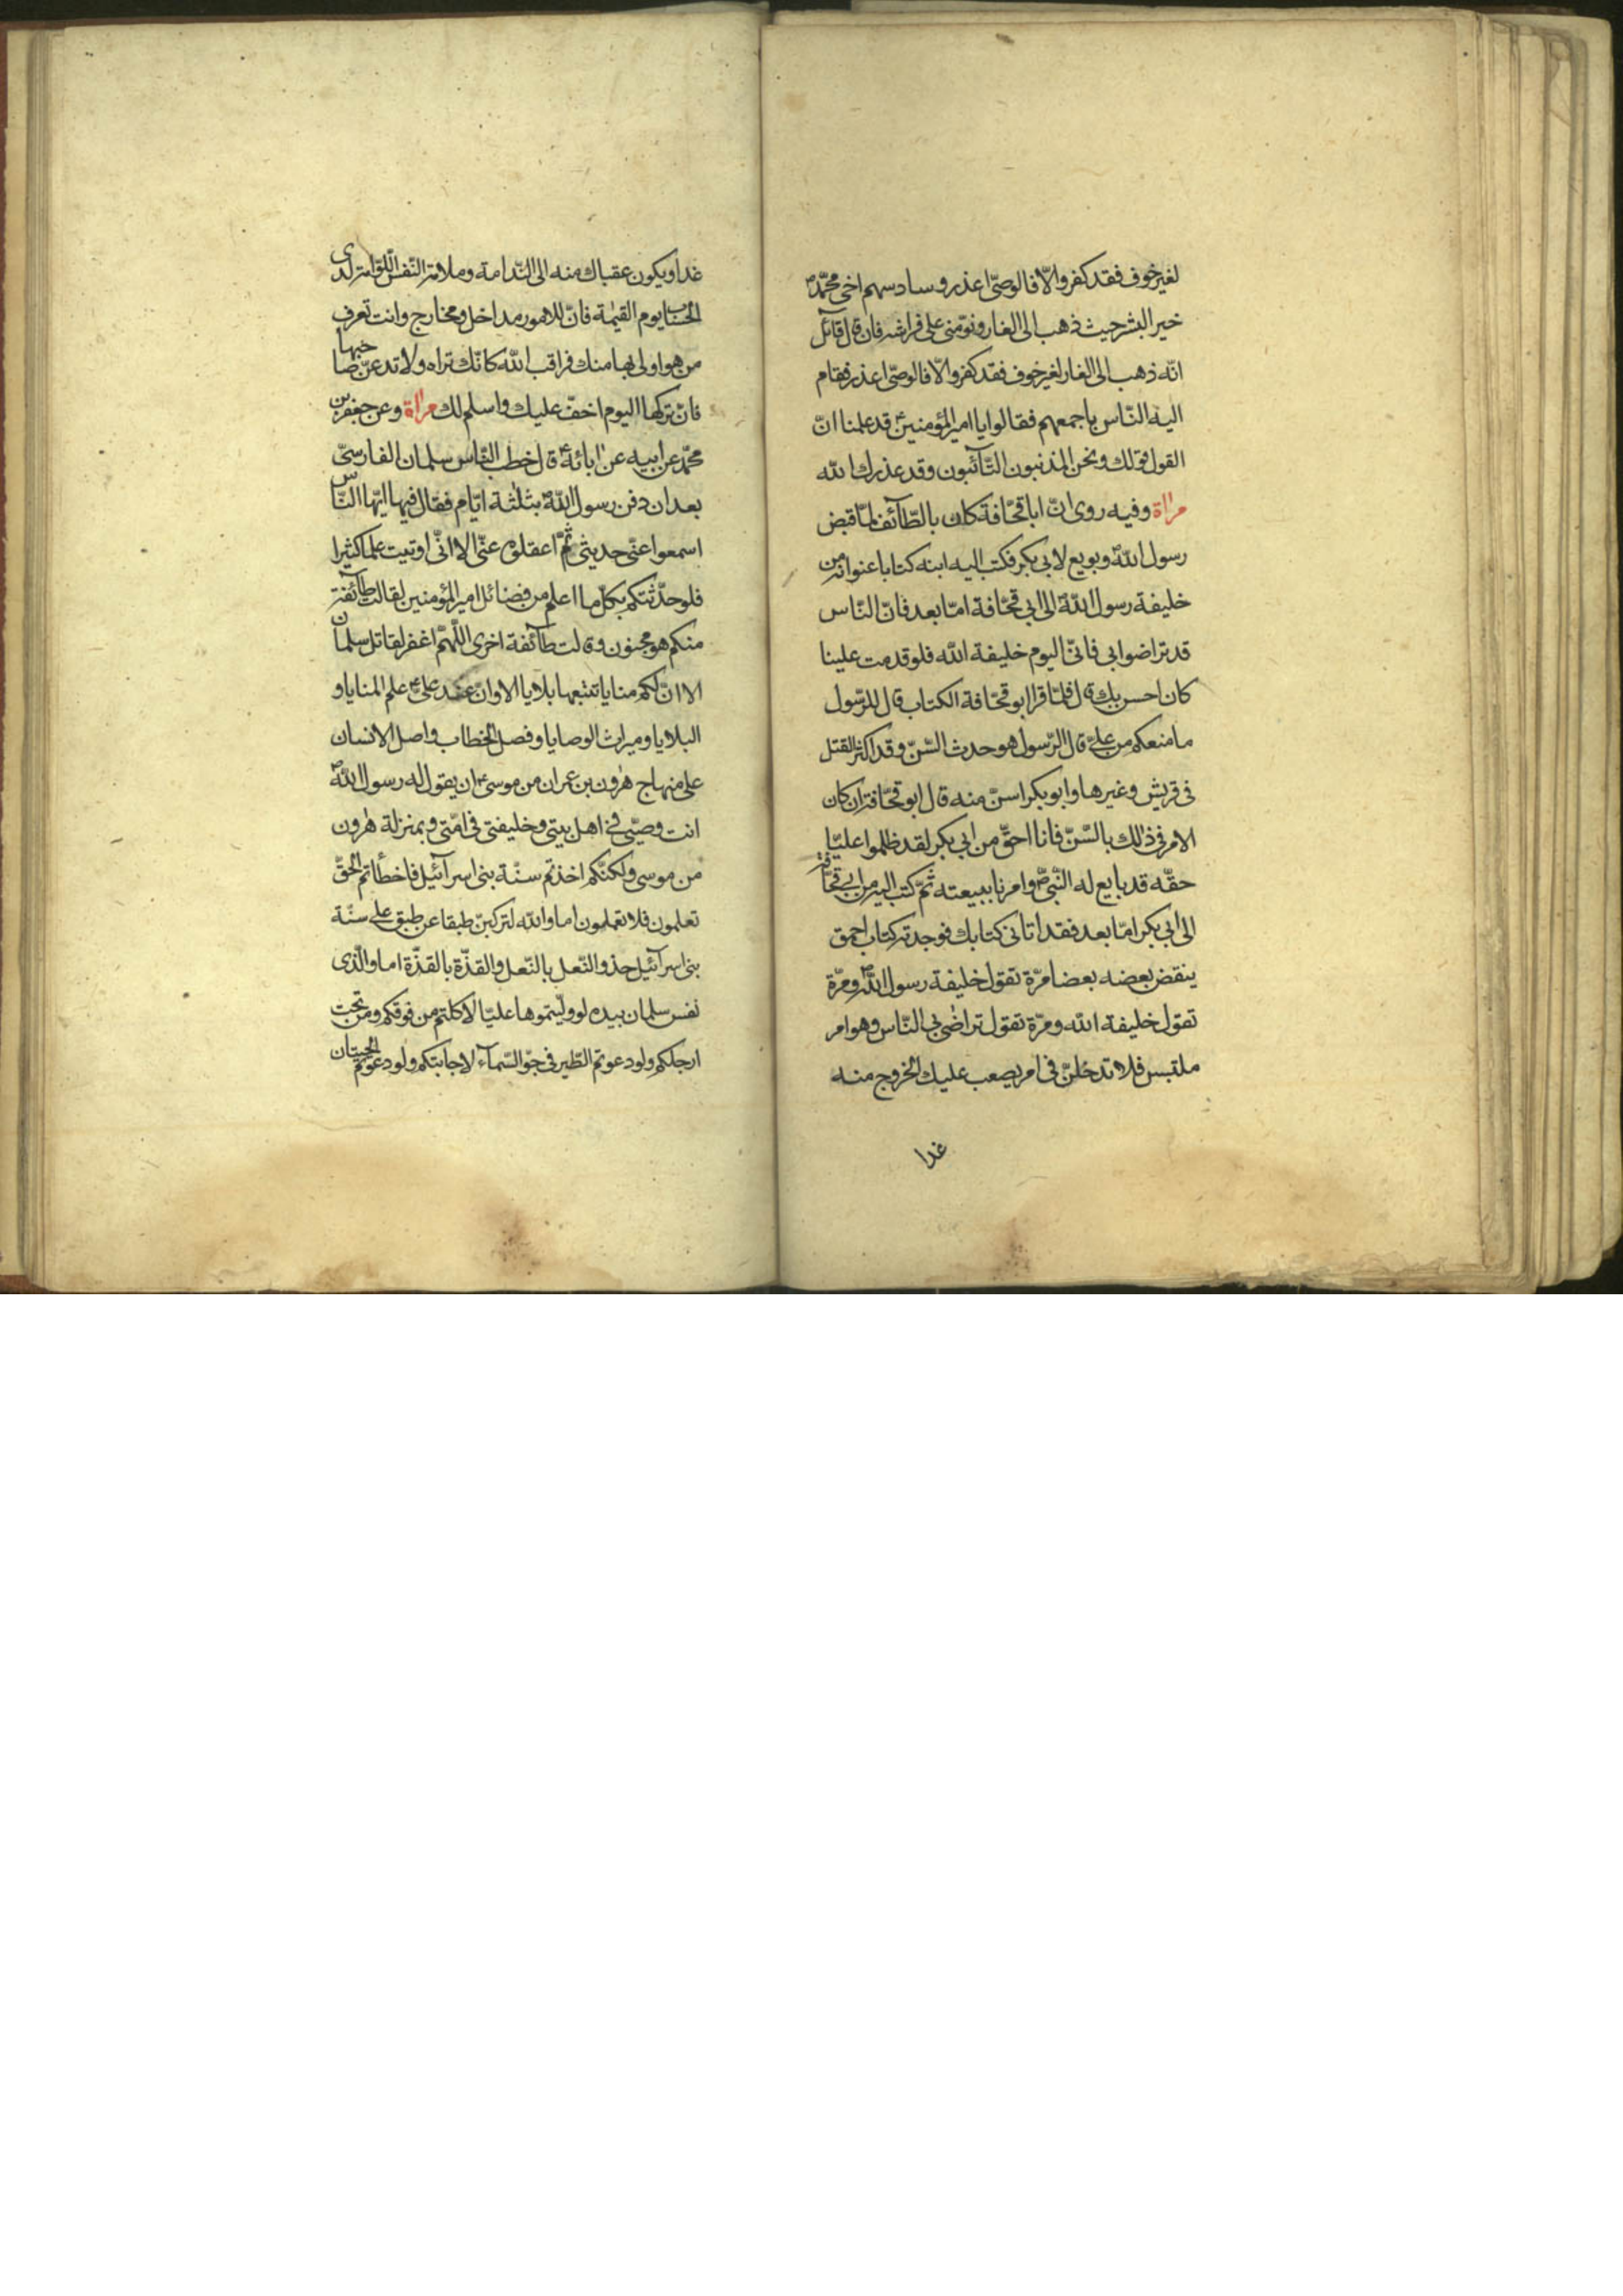 لغير خوف فقد كفر والّا فالوصىّ اعذر وسادسهم اخى محمّد ص
خير البشر حيث ذهب الى الغار ونوّمنى على فراشه فان قال قائل
انّه ذهب الى الغار لغير خوف فقد كفر والّا فالوصىّ اعذر فقام
اليه النّاس باجمعهم فقالوا يا امير المؤمنين ع قد علمنا انّ
القول قولك ونحن المذنبون التّائبون وقد عذرك الله
مراة وفيه روى انّ ابا قحّافة كان بالطّائف لمّا قبض
رسول الله ص وبويع لابى بكر فكتب اليه ابنه كتابا عنوانه من
خليفة رسول الله ص الى ابى قحّافة امّا بعد فانّ النّاس
قد تراضوا بى فانّى اليوم خليفة الله فلو قدمت علينا
كان احسن بك قال فلمّا قرا ابو قحّافة الكتاب قال للرّسول
ما منعكم من علىّ ع قال الرّسول هو حدث السّنّ وقد اكثر القتل
فى قريش وغيرها وابو بكر اسنّ منه قال ابو قحّافة ان كان
الامر فى ذلك بالسّنّ فانا احقّ من ابى بكر لقد ظلموا عليّا
حقّه قد بايع له النّبىّ ص وامرنا ببيعته ثمّ كتب اليه من ابى قحّافة
الى ابى بكر امّا بعد فقد اتانى كتابك فوجدته كتاب احمق
ينقض بعضه بعضا مرّة تقول خليفة رسول الله ص ومرّة
تقول خليفة الله ومرّة تقول تراضى بى النّاس وهو امر
ملتبس فلا تدخلنّ فى امر يصعب عليك الخروج منه
غدا
غدا ويكون عقباك منه الى النّدامة وملامة النّفس اللّوّامة لدى
الحساب يوم القيمة فانّ للامور مداخل ومخارج وانت تعرف
من هو اولى بها منك فراقب الله كانّك تراه ولا تدعنّ صاحبها
فانّ تركها اليوم اخفّ عليك واسلم لك مراة وعن جعفر بن
محمّد عن ابيه عن ابائه ع قال خطب النّاس سلمان الفارسىّ
بعد ان دفن رسول الله ص بثلثة ايّام فقال فيها ايّها النّاس
اسمعوا عنّى حديثى ثمّ اعقلوه عنّى الا انّى اوتيت علما كثيرا
فلو حدّثتكم بكلّ ما اعلم من فضائل امير المؤمنين لقالت طائفة
منكم هو مجنون وقالت طائفة اخرى اللّهمّ اغفر لقاتل سلمان
الا انّ لكم منايا تتبعها بلايا الا وانّ عند علىّ ع علم المنايا و
البلايا وميراث الوصايا وفصل الخطاب واصل الانسان
على منهاج هرون بن عمران من موسى ع ان يقول له رسول الله ص
انت وصيّى فى اهل بيتى وخليفتى فى امّتى وبمنزلة هرون
من موسى ولكنّكم اخذتم سنّة بنى اسرآئيل فاخطأتم الحقّ
تعلمون فلا تعلمون اما والله لتركبنّ طبقا عن طبق على سنّة
بنى اسرآئيل حذو النّعل بالنّعل والقذّة بالقذّة اما والّذى
نفس سلمان بيده لو ولّيتموها عليّا لاكلتم من فوقكم ومن تحت
ارجلكم ولو دعوتم الطّير فى جوّ السّمآء لاجابتكم ولو دعوتم الحيتان